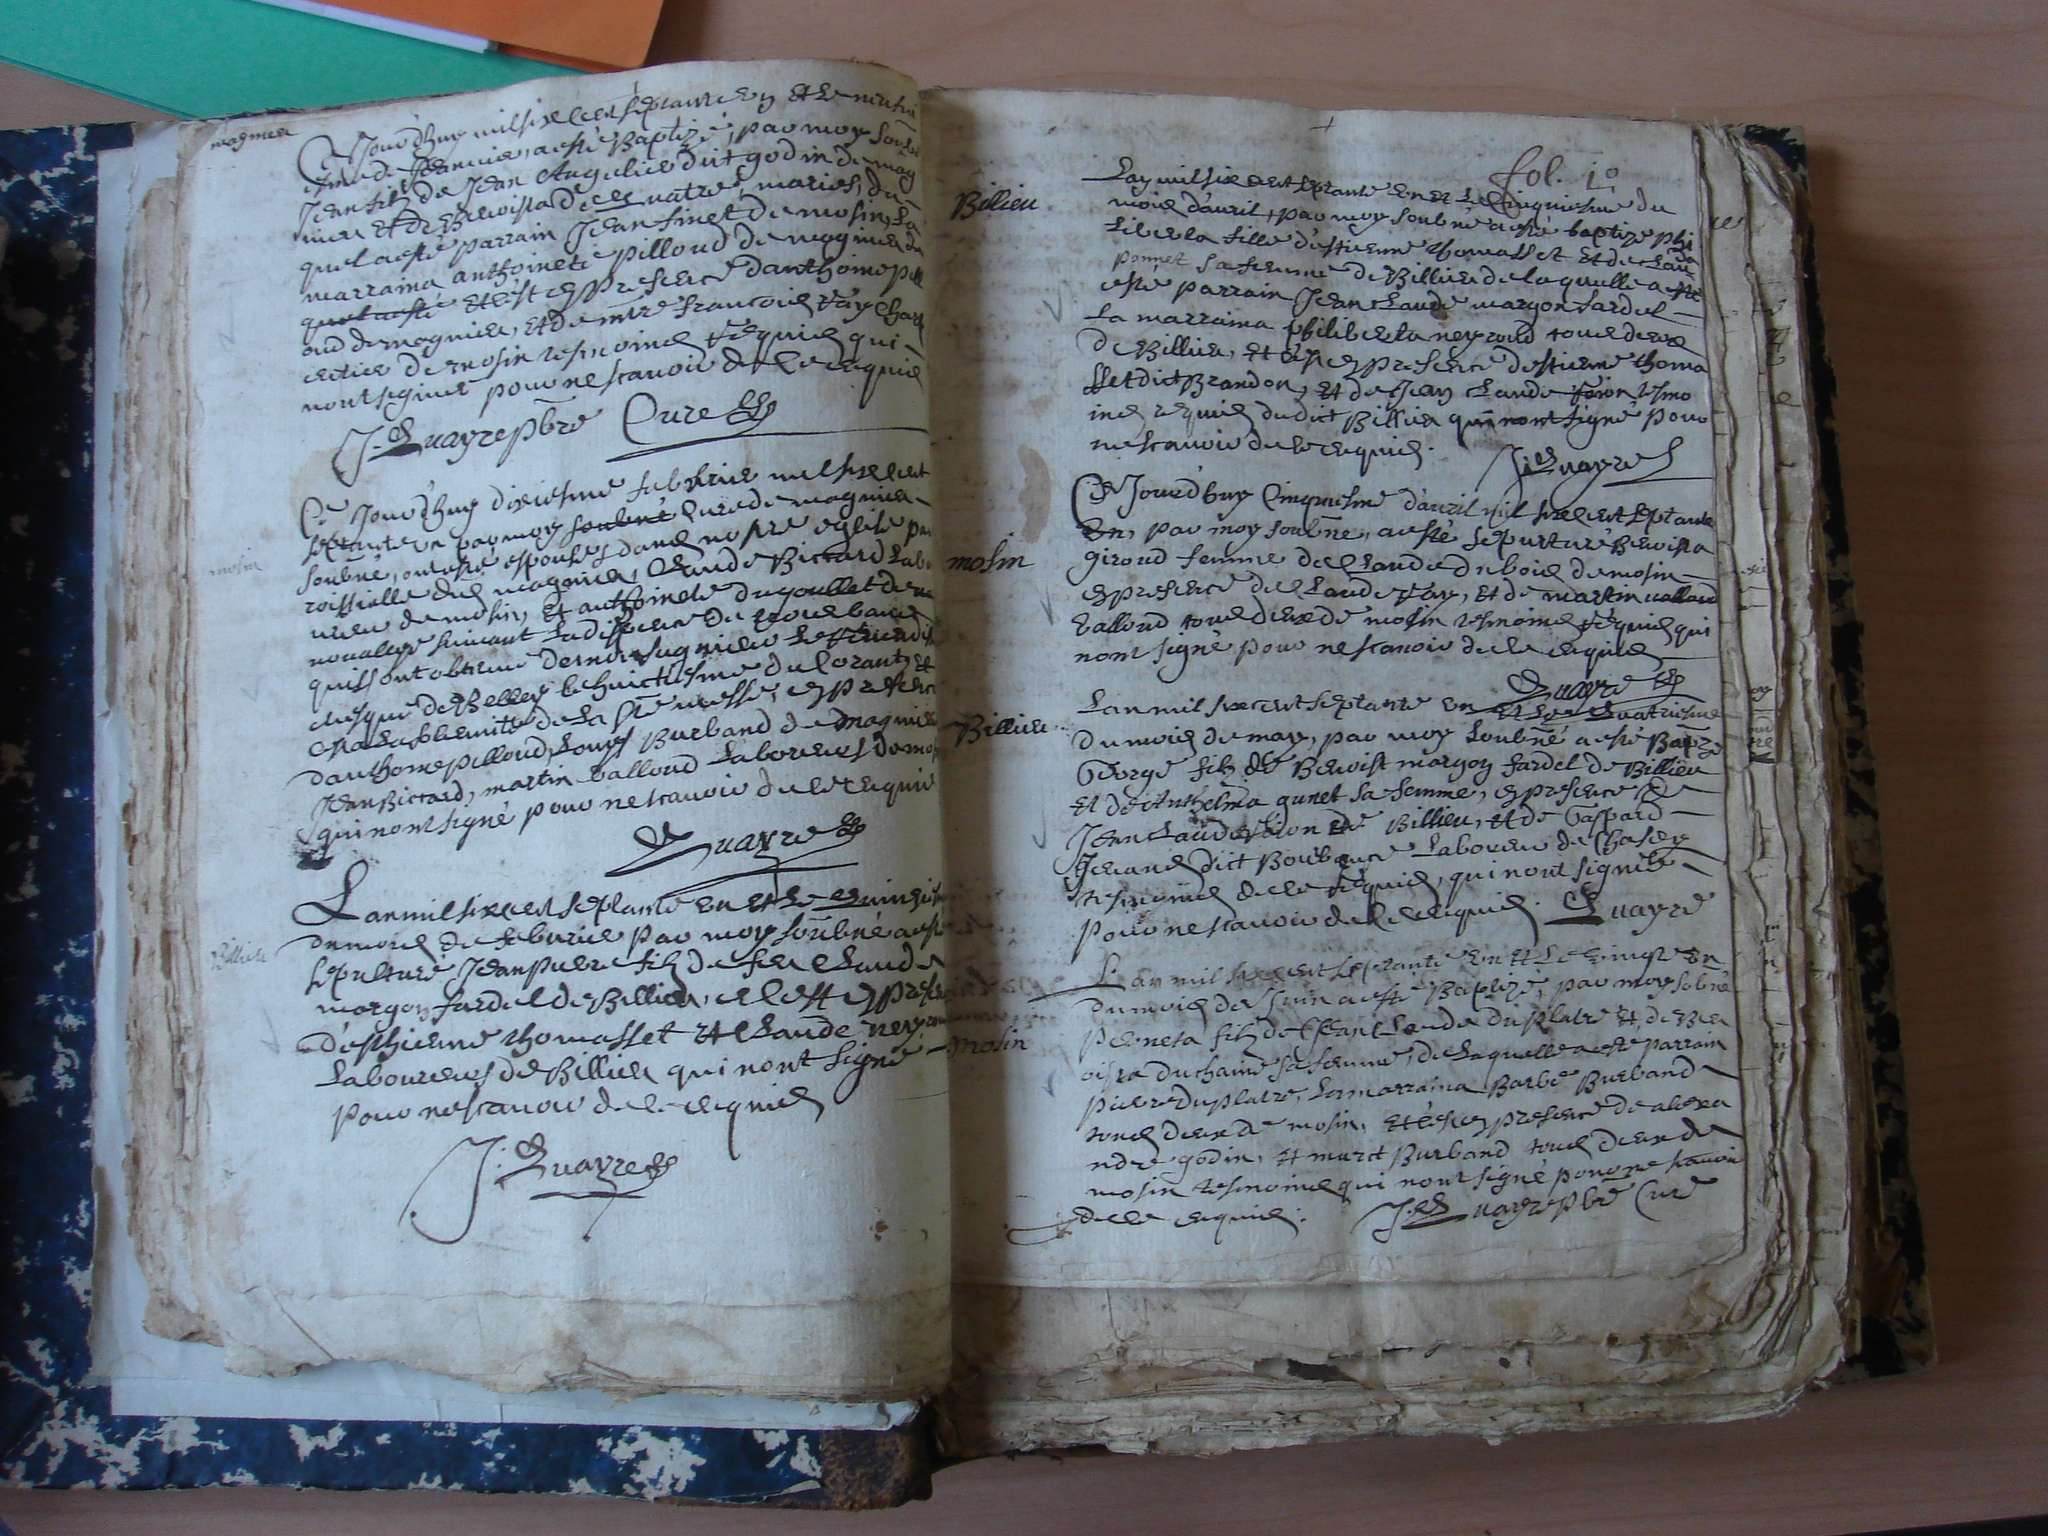 magnieu
Ce Jourdhuy mil six cent septante en et le neufvi
esme de Janvier, a esté Baptizé, par moy soubné
Jean filz de Jean Angelier dict godin de mag
nieu et de Benoista mariés, du
quel a esté parrain Jean finet de mosin, la
marraina anthoinete pilloud de magnieu du
quel a esté et c'est en presence danthoine pill
oud de magnieu, et de mre francois Fay Char
entier de mosin tesmoins requis qui
nont signer pour ne scavoir de ce requis
J. Quayre pbre Curé
mosin
Ce Jourdhuy dixiesme febvrier mil six cent
septante un par moy soubné Curé de magnieu
soubné, ont esté espousés dans nostre eglise pa
roissielle dud magnieu, Claude Bictard labo
ureur de mosin, et anthoinete du goullet de
suivant la dispense de trois bancs
quilz ont obtenue de monseigneur
evesque de Belley le huictiesme du Corant, et
en la sollemnité de la ste messe, en presence
danthoine pilloud, Louys Burband de magnieu
Jean Bictard, martin ballond laboureurs de mo
qui nont signé pour ne scavoir de ce requis
Quayre
Billieu
Lan mil six cent septante en et le quinziesme
du mois de febvrier par moy soubné a esté
sepulturé Jean pierre filz de feu Claude
margon fardel de Billieu, et c'est en presence
d'esthienne thomasset et Claude neyroud
laboureurs de Billieu qui nont signé
pour ne scavoir de ce requis
J. Quayre
fol. 10
Billieu
Lan mil six cent septante en et le Cinquiesme du
mois d'avril, par moy soubné a esté baptizé phi
liberta fille d'estienne thomasset et de Clau
da ponnet sa femme de Billieu de laquelle a
esté parrain Jean Claude margon fardel
la marraina philiberta neyroud tous deux
de Billieu, et c'est en presence d'estienne thoma
sset dict Brandon, et de Jean Claude tesmo
ins requis du dict Billieu qui nont signé pour
ne scavoir de ce requis.
J. Quayre
mosin
Ce Jourdhuy Cinquiesme d'avril mil six cent septante
en, par moy soubné, a esté sepulturé Benoista
giroud femme de Claude dubois de mosin
en presence de Claude Fay, et de martin
ballond tous deux de mosin tesmoins requis qui
nont signé pour ne scavoir de ce requis
Quayre
Billieu
Lan mil six cent septante en et le quatriesme
du mois de may, par moy soubné a esté Baptizé
George filz de Benoist margon fardel de Billieu
et de Anthelma gunet sa femme, en presence de
Jean Claude de Billieu, et de Gaspard
dict laboureur de Chasey
tesmoins de ce requis, qui nont signés
pour ne scavoir de ce requis. Quayre
mosin
Lan mil six cent septante en et le vingt en
du mois de Juin a esté Baptizé, par moy soubné
perneta filz de Jean Claude duplatre et de Ben
oista duchaine sa femme, de laquelle a esté parrain
pierre duplatre, la marraina Barbe Burband
tous deux de mosin, et c'est en presence de alexa
ndre godin, et murct Burband tous deux de
mosin tesmoins qui nont signé pour ne scavoir
de ce requis. J. Quayre pbre Curé